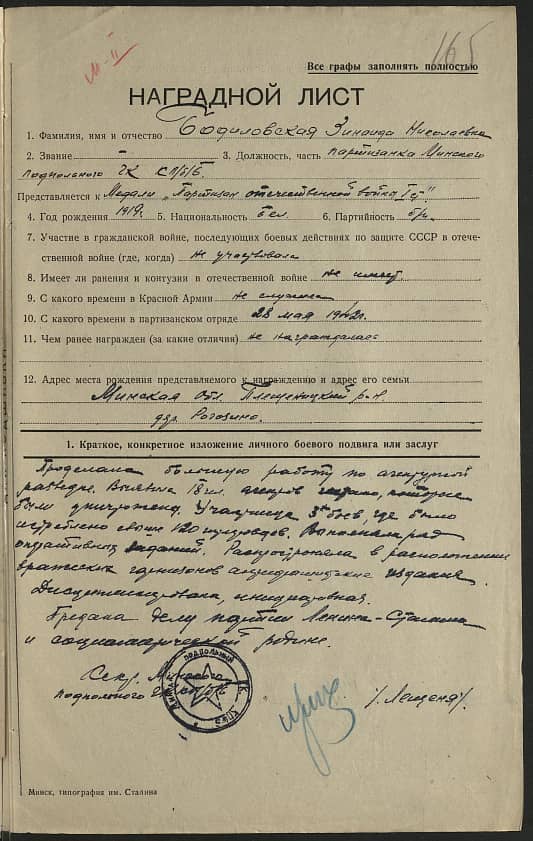 165
М-II
Все графы заполнять полностью
НАГРАДНОЙ ЛИСТ
1. Фамилия, имя и отчество Бодиловская Зинаида Николаевна
2. Звание – 3. Должность, часть партизанка Минского
подпольного ГК КП/б/Б
Представляется к Медали „Партизан отечественной войны I ст."
4. Год рождения 1919г. 5. Национальность бел. 6. Партийность б/п
7. Участие в гражданской войне, последующих боевых действиях по защите СССР в отече-
ственной войне (где, когда) не участвовала
8. Имеет ли ранения и контузии в отечественной войне не имеет
9. С какого времени в Красной Армии не служила
10. С какого времени в партизанском отряде 28 мая 1942г.
11. Чем ранее награжден (за какие отличия) не награждалась
12. Адрес места рождения представляемого к награждению и адрес его семьи
Минская обл. Плещеницкий р-н
дер. Рогозино.
1. Краткое, конкретное изложение личного боевого подвига или заслуг
Проделала большую работу по агентурной
разведке. Выявила 18 чел. агентов гестапо, которые
были уничтожены. Участница 3х боев, где было
истреблено свыше 120 Выполнила ряд
оперативных заданий. Распространяла в расположении
вражеских гарнизонов антифашистские издания.
Дисциплинирована, инициативная.
Предана делу партии Ленина-Сталина
и социалистической родине.
Секр. Минского
подпольного ГК КП/б/Б /Лещеня/.
МИНСКИЙ ПОДПОЛЬНЫЙ
Минск, типография им. Сталина